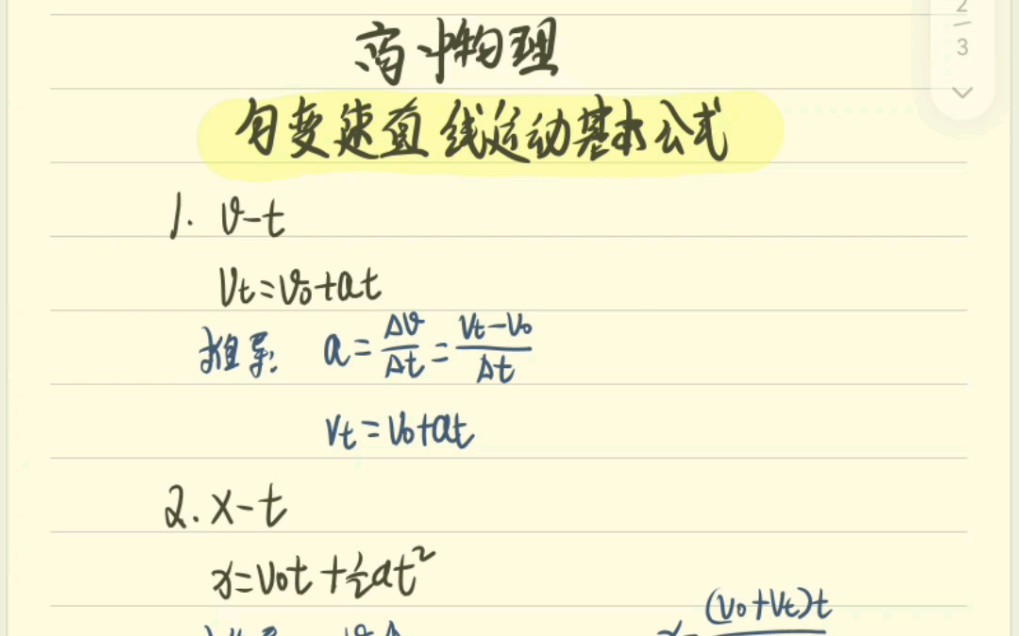 2
3
高中物理
匀变速直线运动基本公式
1. v-t
Vt=v₀+at
推导: a=Δv/Δt=(Vt-V₀)/Δt
Vt=V₀+at
2. x-t
x=V₀t+½at²
(V₀+Vt)t